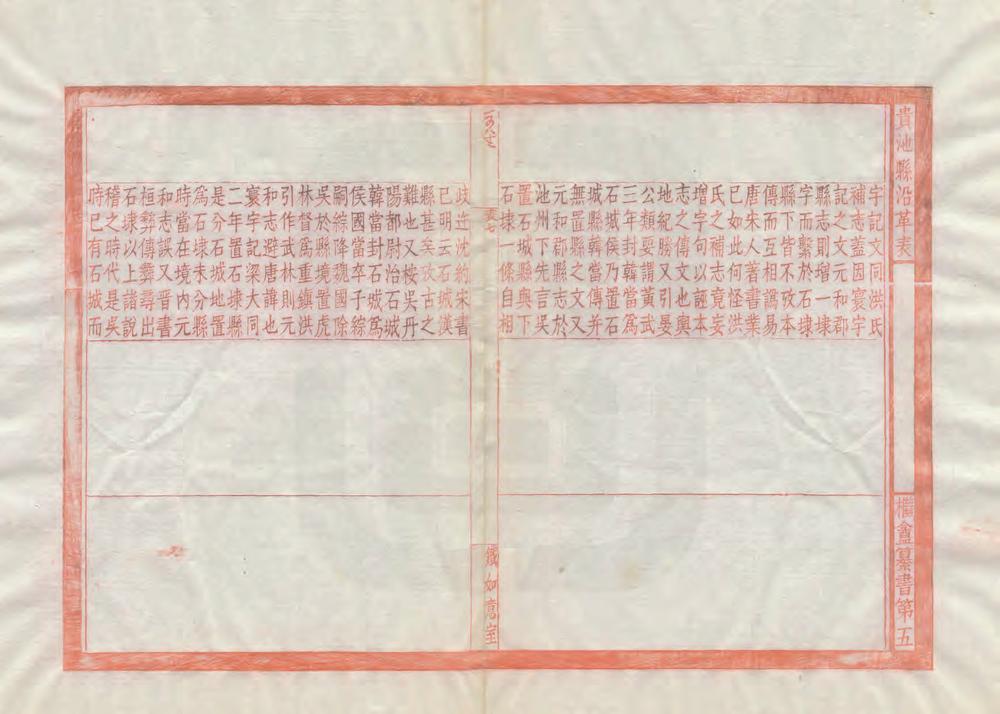 貴池縣沿革表
宇記文同洪氏
補志蓋因寰宇
記之文元和郡
縣志則增一埭
字而繫於石埭
縣下皆不攷本
傳而互相譌易
唐宋人著書業
已如此何怪洪
氏之補志竟妄
增字句以誣本
志之傳文也輿
地紀勝又引晏
公類要謂黃武
三年封韓當爲
石城侯乃置石
城縣韓當傳并
無置縣之文又
元和郡縣志於
池州下先言吳
置石城縣與下
石埭一條自相
盦纂書第五
表七
鐵如意室
歧迕沈約宋書
已明云石城漢
縣甚矣攷古之
難也又按吳丹
陽都尉治石城
韓當封石城爲
侯國當卒子綜
嗣綜降魏國除
吳於縣境置虎
林督爲重鎮洪
引作武林則元
和志避唐諱也
寰宇記梁大同
二年置石埭縣
是分石城地置
爲石埭未分縣
時當在境內元
和志誤又晉書
桓彝傳彝尋出
石埭以上諸說
稽之時代是吳
時已有石城而